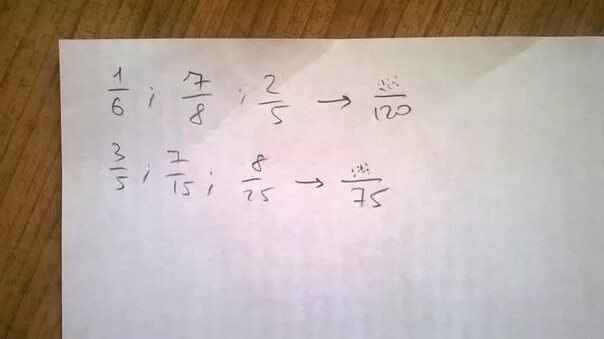 1/6 ; 7/8 ; 2/5 → .../120
3/5 ; 7/15 ; 8/25 → .../75